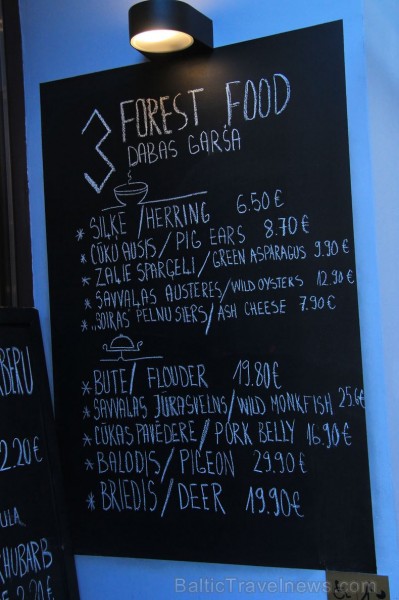 3 FOREST FOOD
DABAS GARŠA
* SIĻĶE / HERRING 6.50 €
* CŪKU AUSIS / PIG EARS 8.70 €
* ZAĻIE SPARGEĻI / GREEN ASPARAGUS 9.90 €
* SAVVAĻAS AUSTERES / WILD OYSTERS 12.90 €
* "SOIRAS" PELNU SIERS / ASH CHEESE 7.90 €
* BUTE / FLOUDER 19.80 €
* SAVVAĻAS JŪRASVELNS / WILD MONKFISH 25.6 €
* CŪKAS PAVĒDERE / PORK BELLY 16.90 €
* BALODIS / PIGEON 29.90 €
* BRIEDIS / DEER 19.90 €
BERU
2.20 €
ULA
RHUBARB
2.20 €
BalticTravelnews.com